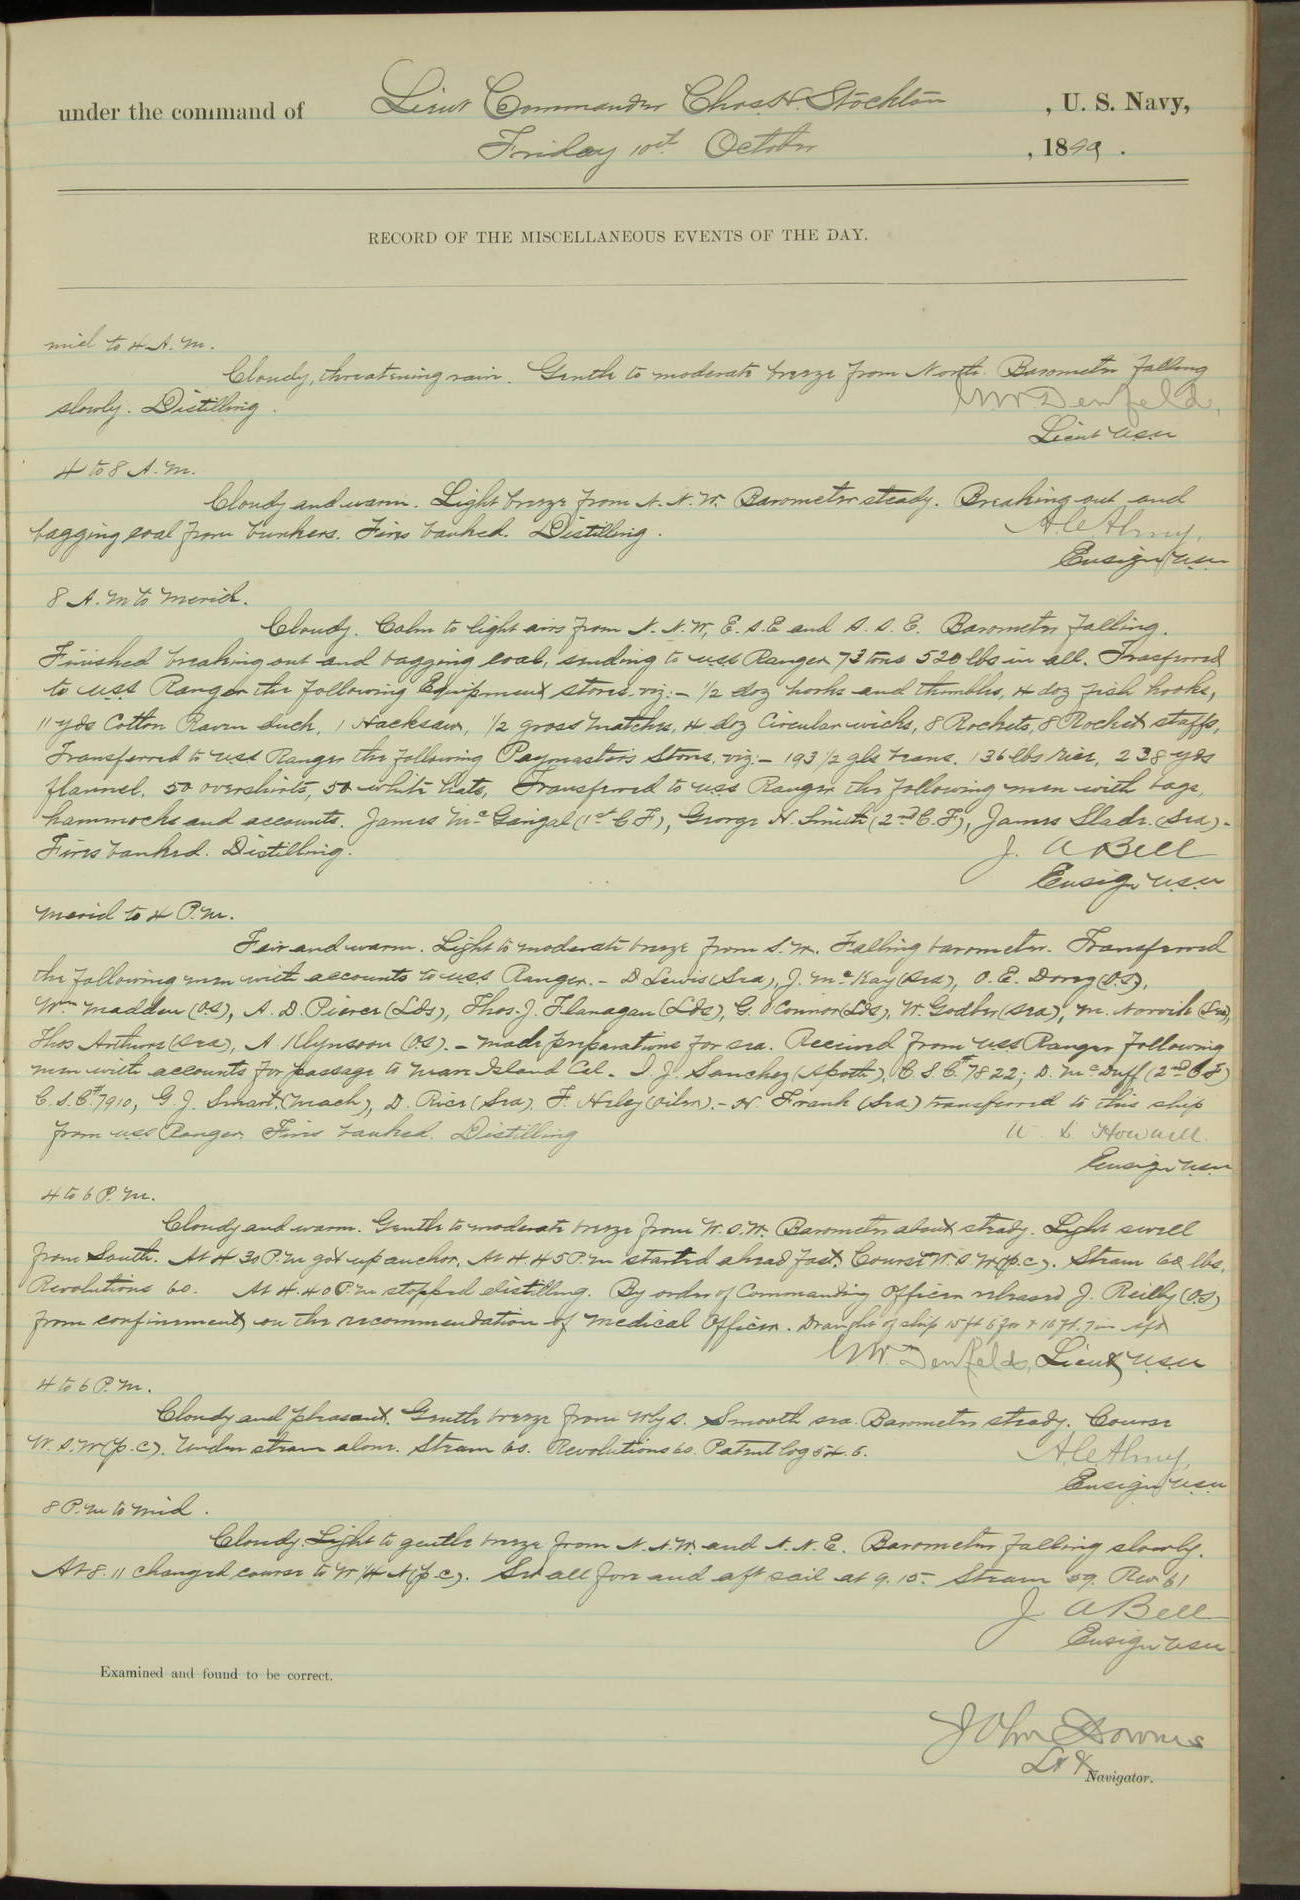 under the command of Lieut Commander Chas. H. Stockton, U. S. Navy,
Friday 10th October, 1890.
RECORD OF THE MISCELLANEOUS EVENTS OF THE DAY.
mid to 4 A. M.
Cloudy, threatening rain. Gentle to moderate breeze from North. Barometer falling
slowly. Distilling.
Denfeld,
Lieut USN
4 to 8 A. M.
Cloudy and warm. Light breeze from N. N. W. Barometer steady. Breaking out and
bagging coal from bunkers. Fires banked. Distilling.
A. C. Almy,
Ensign USN
8 A. M to Merid.
Cloudy. Calm to light airs from N. N. W, E. S. E and S. S. E. Barometer falling.
Finished breaking out and bagging coal, sending to USS Ranger 73 tons 520 lbs in all. Trasferred
to USS Ranger the following Equipment stores. viz:- 1/2 doz hooks and thimbles, 4 doz fish hooks,
11 yds Cotton Raven duck, 1 Hacksaw, 1/2 gross matches, 4 doz Circular wicks, 8 Rockets, 8 Rocket staffs,
Transferred to USS Ranger the following Paymasters Stores. viz:- 193 1/2 gls beans. 136 lbs rice, 238 yds
flannel, 50 overshirts, 50 white hats, Transferred to USS Ranger the following men with bags,
hammocks and accounts. James Mc (1st C F), George H. Smith (2nd C. F), James Slade. (Sea).-
Fires banked. Distilling.
J. A Bell
Ensign USN
Merid to 4 P. M.
Fair and warm. Light to moderate breeze from S. W. Falling barometer. Transferred
the following men with accounts to USS Ranger.- D Lewis (Sea), J. McKay (Sea), O. E. (O.S),
Wm Madden (O.S), A. D. Pierce (Lds), Thos. J. Flanagan (Lds), G. O'Connor (Lds), W. Godber (Sea), M. (Sea),
Thos Arthurs (Sea), A (OS).- Made preparations for sea. Received from USS Ranger following
men with accounts for passage to Mare Island Cal.- I. J. Sanchez (Apoth), C. S. C. # 7822; D. McDuff (2nd C F)
C. S. C # 7910, G J. Smart. (Mach), D. Rice (Sea), F. (Oiler).- H. Frank (Sea) transferred to this ship
from USS Ranger. Fires banked. Distilling
Ensign USN
4 to 6 P. M.
Cloudy and warm. Gentle to moderate breeze from W. S. W. Barometer about steady. Light swell
from South. At 4 30 P. M got up anchor. At 4.45 P. M started ahead fast. Course W. S. W (p. c). Steam 60 lbs,
Revolutions 60. At 4.40 P. M stopped distilling. By order of Commanding Officer released J. Reilly (O.S)
from confinement, on the recommendation of Medical Officer. Draught of ship 15 ft 6 for & 16 ft. 7 in aft
Denfeld, Lieut, USN
4 to 6 P. M.
Cloudy and pleasant. Gentle breeze from Wly S. Smooth sea. Barometer steady. Course
W. S. W (p. c). Under steam alone. Steam 60. Revolutions 60. Patent log 54.6.
A. C. Almy,
Ensign USN
8 P. M to mid.
Cloudy. Light to gentle breeze from N. N. W. and N. N. E. Barometer falling slowly.
At 8.11 changed course to W 1/4 N (p. c). Set all fore and aft sail at 9.15. Steam 59. Rev. 61
J. A Bell
Ensign USN
Examined and found to be correct.
John Downes
Lt &
Navigator.